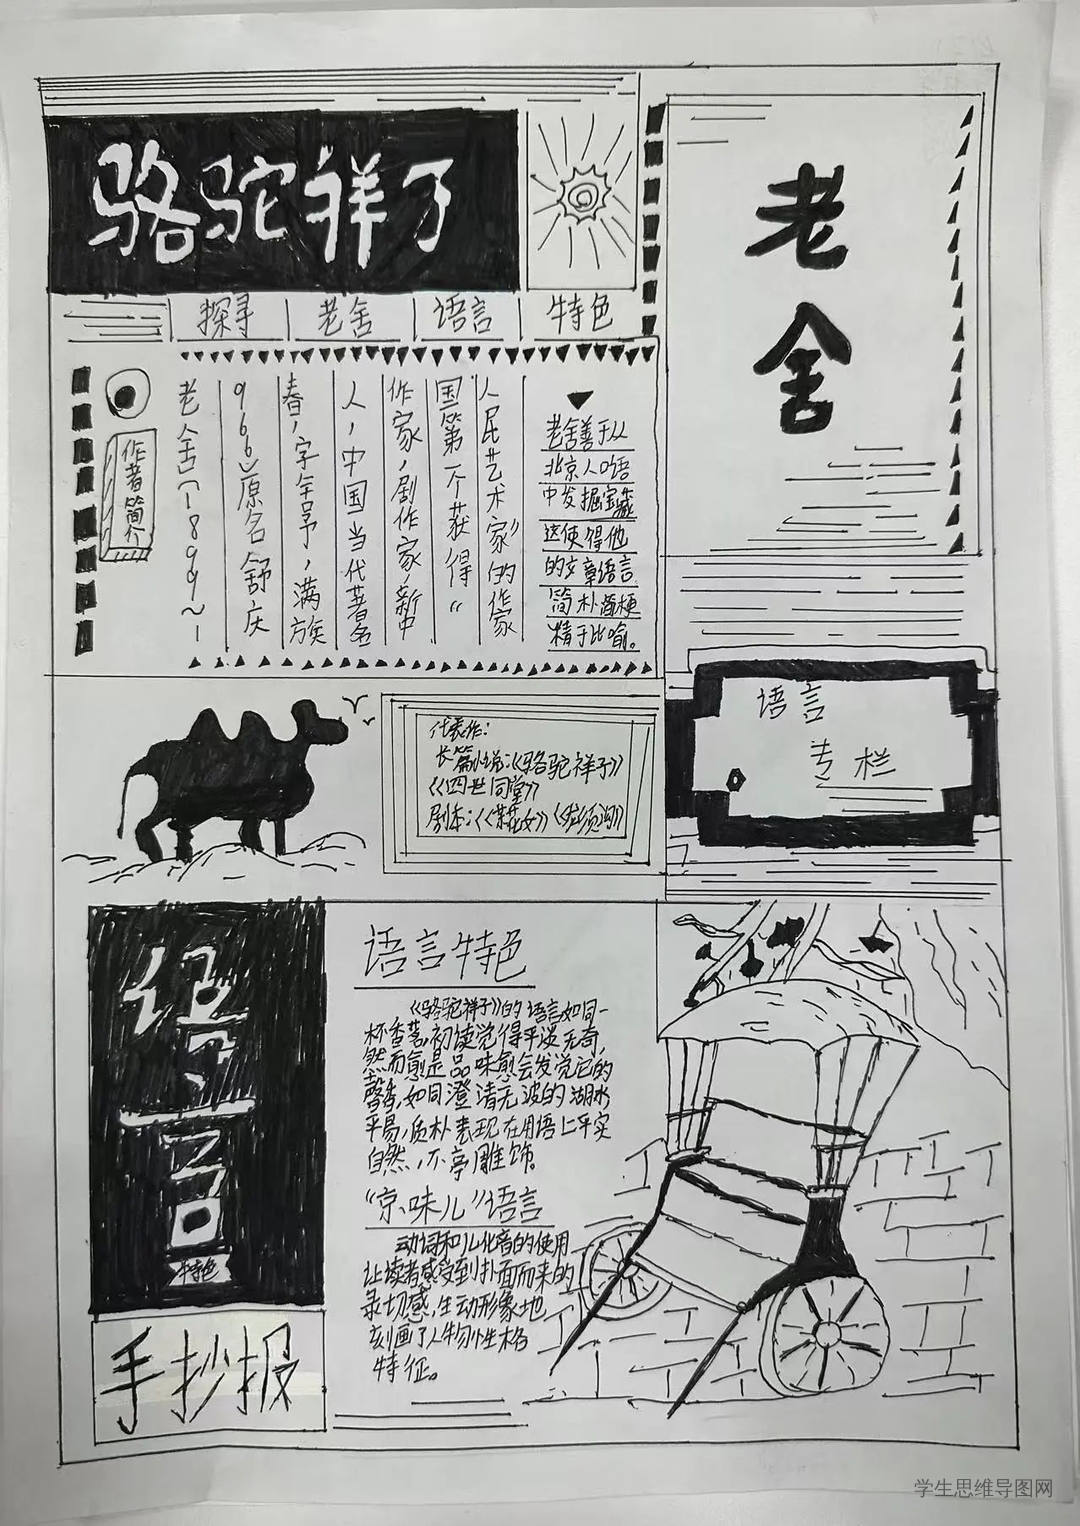 骆驼祥子
老舍
探寻 老舍 语言 特色
作者简介
老舍（1899～1
966）原名舒庆
春，字舍予，满族
人，中国当代著名
作家，剧作家，新中
国第一个获得“
人民艺术家”的作家
老舍善于从
北京人口语
中发掘宝藏
这使得他
的文章语言
简朴
精于比喻。
代表作：
长篇小说：《骆驼祥子》
《四世同堂》
剧本：《茶花女》《龙须沟》
语言
专栏
语言
特色
手抄报
语言特色
《骆驼祥子》的语言如同一
杯香茗，初读觉得平淡无奇，
然而愈是品味愈会发觉它的
馨香，如同澄清无波的湖水
平易，质朴表现在用语上平实
自然，不亭雕饰。
“京味儿”语言
动词和儿化音的使用
让读者感受到扑面而来的
亲切感，生动形象地
刻画了人物性格
特征。
学生思维导图网